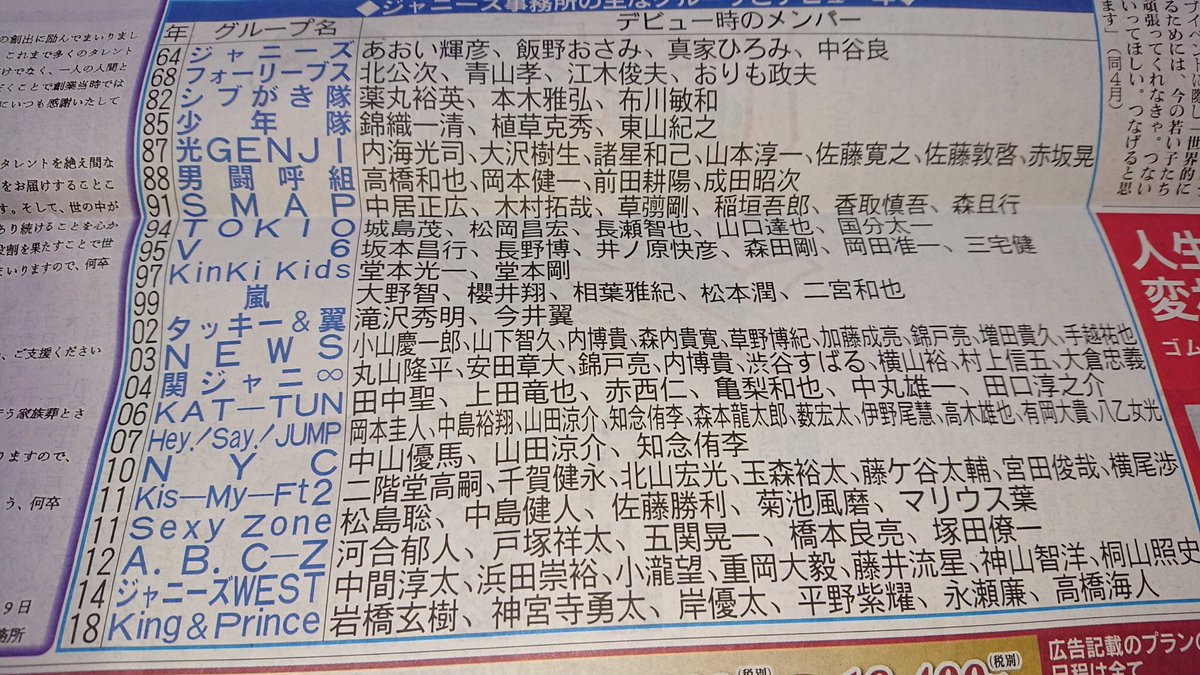 の創出に励んでまいりまし
これまで多くのタレント
けでなく、一人の人間と
だくことで創業当時では
にいつも感謝いたして
タレントを絶え間な
をお届けすることこ
す。そして、世の中が
あり続けることを心か
役割を果たすことで世
まいりますので、何卒
、ご支援ください
う家族葬とさ
りますので、
う、何卒
9日
務所
◆ジャニーズ事務所の主なグループとデビュー年◆
年 グループ名 デビュー時のメンバー
64 ジャニーズ あおい輝彦、飯野おさみ、真家ひろみ、中谷良
68 フォーリーブス 北公次、青山孝、江木俊夫、おりも政夫
82 シブがき隊 薬丸裕英、本木雅弘、布川敏和
85 少年隊 錦織一清、植草克秀、東山紀之
87 光GENJI 内海光司、大沢樹生、諸星和己、山本淳一、佐藤寛之、佐藤敦啓、赤坂晃
88 男闘呼組 高橋和也、岡本健一、前田耕陽、成田昭次
91 SMAP 中居正広、木村拓哉、草彅剛、稲垣吾郎、香取慎吾、森且行
94 TOKIO 城島茂、松岡昌宏、長瀬智也、山口達也、国分太一
95 V6 坂本昌行、長野博、井ノ原快彦、森田剛、岡田准一、三宅健
97 KinKi Kids 堂本光一、堂本剛
99 嵐 大野智、櫻井翔、相葉雅紀、松本潤、二宮和也
02 タッキー＆翼 滝沢秀明、今井翼
03 NEWS 小山慶一郎、山下智久、内博貴、森内貴寛、草野博紀、加藤成亮、錦戸亮、増田貴久、手越祐也
04 関ジャニ∞ 丸山隆平、安田章大、錦戸亮、内博貴、渋谷すばる、横山裕、村上信五、大倉忠義
06 KAT―TUN 田中聖、上田竜也、赤西仁、亀梨和也、中丸雄一、田口淳之介
07 Hey!Say!JUMP 岡本圭人、中島裕翔、山田涼介、知念侑李、森本龍太郎、薮宏太、伊野尾慧、高木雄也、有岡大貴、八乙女光
10 NYC 中山優馬、山田涼介、知念侑李
11 Kis―My―Ft2 二階堂高嗣、千賀健永、北山宏光、玉森裕太、藤ケ谷太輔、宮田俊哉、横尾渉
11 Sexy Zone 松島聡、中島健人、佐藤勝利、菊池風磨、マリウス葉
12 A.B.C―Z 河合郁人、戸塚祥太、五関晃一、橋本良亮、塚田僚一
14 ジャニーズWEST 中間淳太、浜田崇裕、小瀧望、重岡大毅、藤井流星、神山智洋、桐山照史
18 King＆Prince 岩橋玄樹、神宮寺勇太、岸優太、平野紫耀、永瀬廉、高橋海人
るためには、今の若い子たち
頑張ってくれなきゃ。つない
いってほしい。つなげると思
ます」（同4月）
人生
変
ゴム
(税別)
(税別)
広告記載のプランの
日程は全て